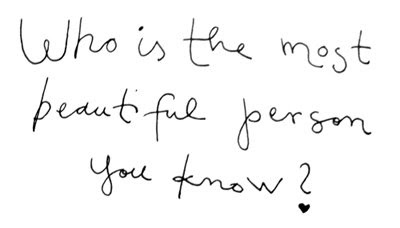 Who is the most
beautiful person
you know?